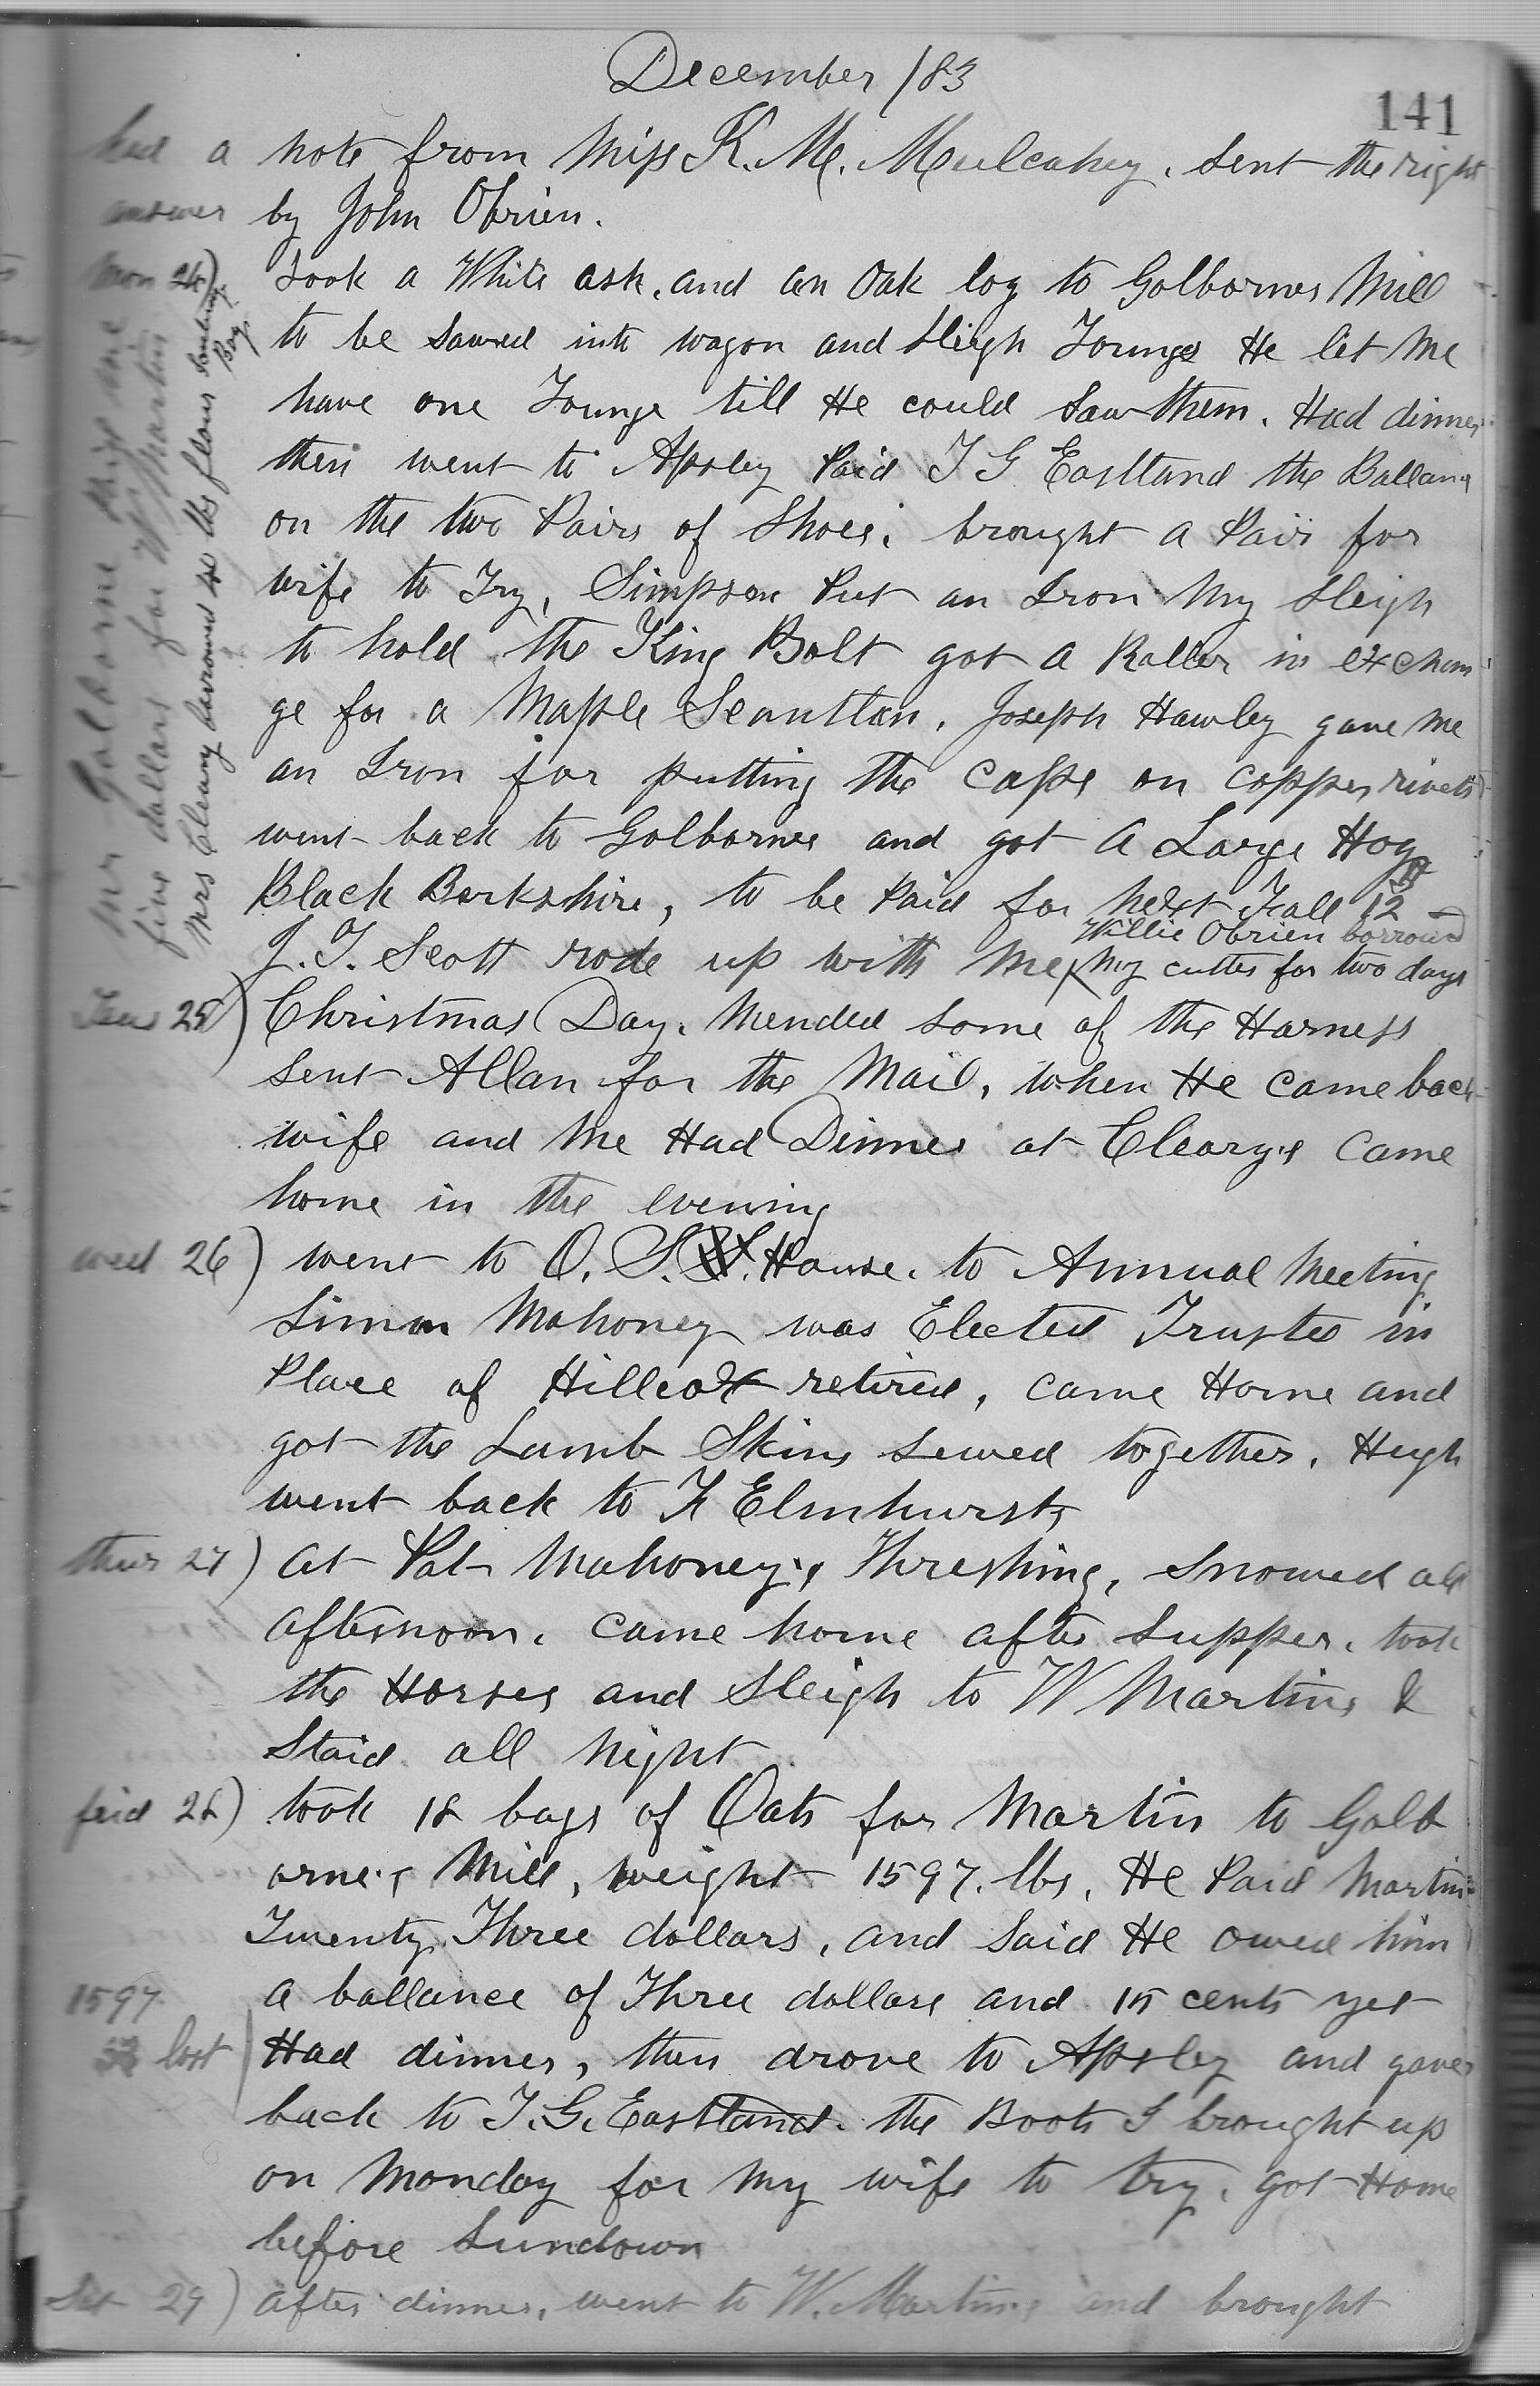 December /83
141
had a note from Miss K. M. Mulcahey. sent the right
answer by John Obrien.
Mon 24) Took a White ash, and an Oak log to Golbornes Mill
to be Sawed into wagon and Sleigh Tounges He let Me
have one Tounge till He could Saw them. Had dinner
then went to Apsley Paid T G Eastland the Ballance
on the two Pairs of Shoes. brought a Pair for
wife to Try, Simpson Put an Iron My Sleigh
to hold the King Bolt got a Roller in exchan
ge for a Maple Scantlan. Joseph Hawley gave Me
an Iron for putting the Caps on copper rivets
went back to Golbornes and got a Large Hog
Black Berkshire, to be Paid for Next Fall 12
J. T. Scott rode up with Me, Willie Obrien borrowed
My cutter for two days
Mr Golborne
five dollars for W Martin
Mrs Cleary borrowed lbs flour
Tues 25) Christmas Day. Mended Some of the Harness
Sent Allan for the Mail, when He came back
wife and Me Had Dinner at Cleary's Came
home in the evening
wed 26) went to O. S. House. to Annual Meeting
Simon Mahoney was Elected Trustee in
Place of Hillcox retired, came Home and
got the Lamb Skins Sewed together. Hugh
went back to F Elmhursts
thur 27) at Pat Mahoney's Threshing, Snowed all
afternoon. came home after Supper. took
the Horses and Sleigh to W Martins &
Staid all Night
frid 28) took 18 bags of Oats for Martin to Golb
orne's Mill, weight 1597. lbs, He Paid Martin
Twenty Three dollars, and Said He owed him
1597 a ballance of Three dollars and 15 cents yet
lost Had dinner, then drove to Apsley and gave
back to T. G. Eastland. the Boots I brought up
on Monday for My wife to try. got Home
before Sundown
Sat 29) after dinner, went to W. Martins and brought